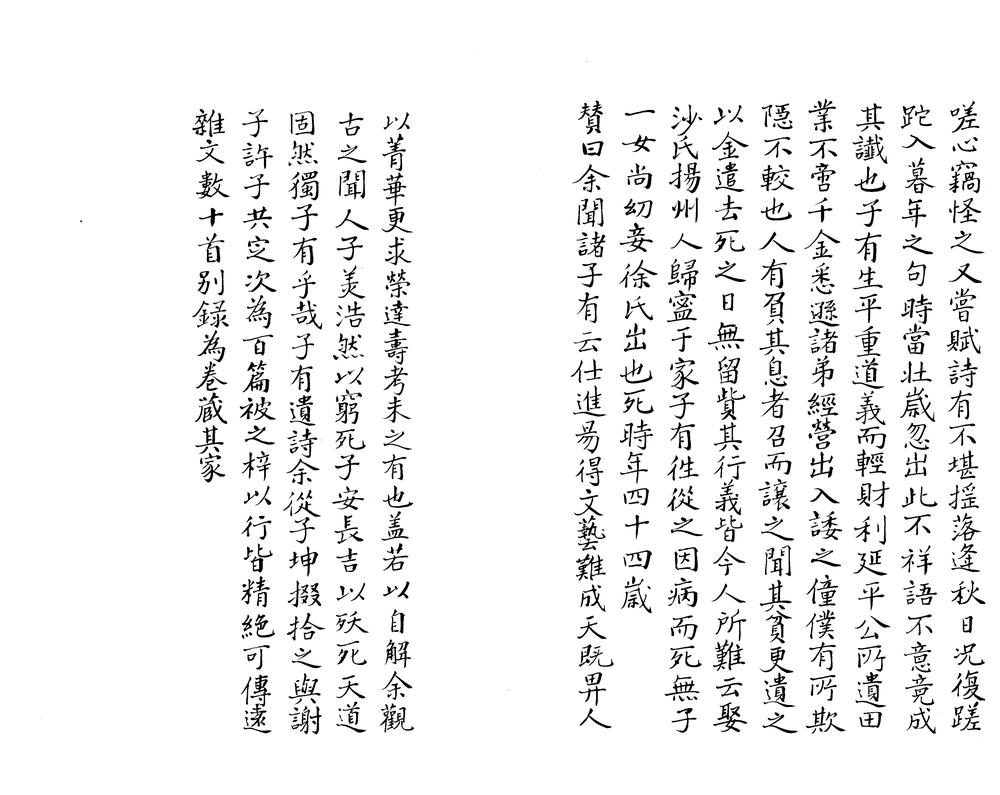 嗟心竊怪之又嘗賦詩有不堪揺落逢秋日况復蹉
跎入暮年之句時當壮歳忽出此不祥語不意竟成
其讖也子有生平重道義而輕財利延平公所遺田
業不啻千金悉遜諸弟經營出入諉之僮僕有所欺
隠不較也人有負其息者召而讓之聞其貧更遺之
以金遣去死之日無留貲其行義皆今人所難云娶
沙氏揚州人歸寧于家子有徃從之因病而死無子
一女尚幼妾徐氏出也死時年四十四歳
賛曰余聞諸子有云仕進昜得文藝難成天既畀人
以菁華更求榮達壽考未之有也盖若以自解余觀
古之聞人子美浩然以窮死子安長吉以殀死天道
固然獨子有乎哉子有遺詩余從子坤掇拾之與謝
子許子共定次為百篇被之梓以行皆精絶可傳遠
雜文數十首别録為巻蔵其家